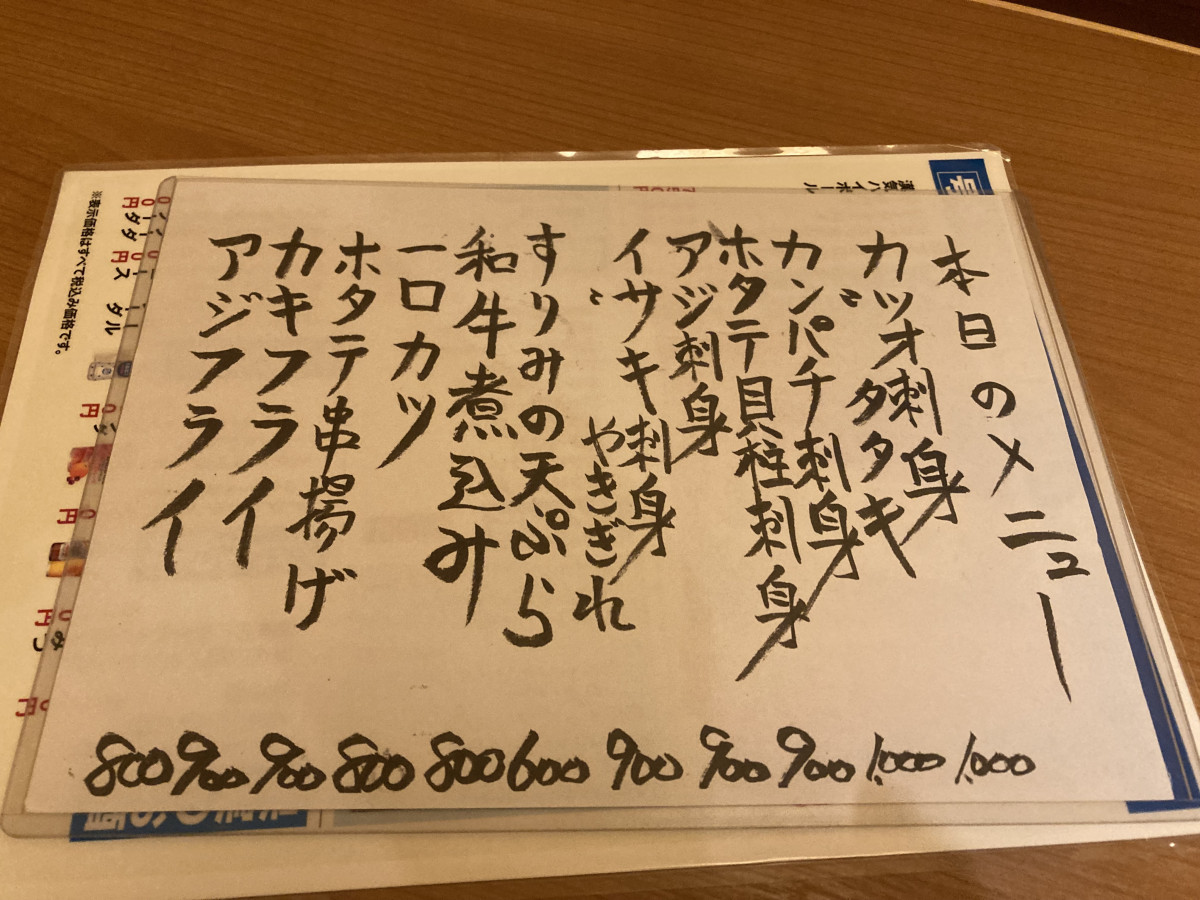 本日のメニュー
カツオ刺身
〃タタキ
カンパチ刺身
ホタテ貝柱刺身
アジ刺身
イサキ刺身
〃やきぎれ
すりみの天ぷら
和牛煮込み
一口カツ
ホタテ串揚げ
カキフライ
アジフライ
1,000
1,000
900
900
900
600
800
800
900
900
800
ハイボール
※表示価格はすべて税込み価格です。